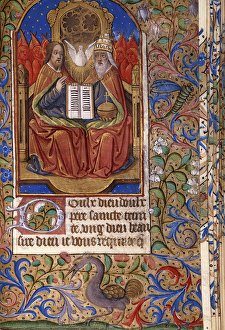 Doulx dieu doulx
pere saincte trini
te ung dieu beau
sire dieu ie vous requier